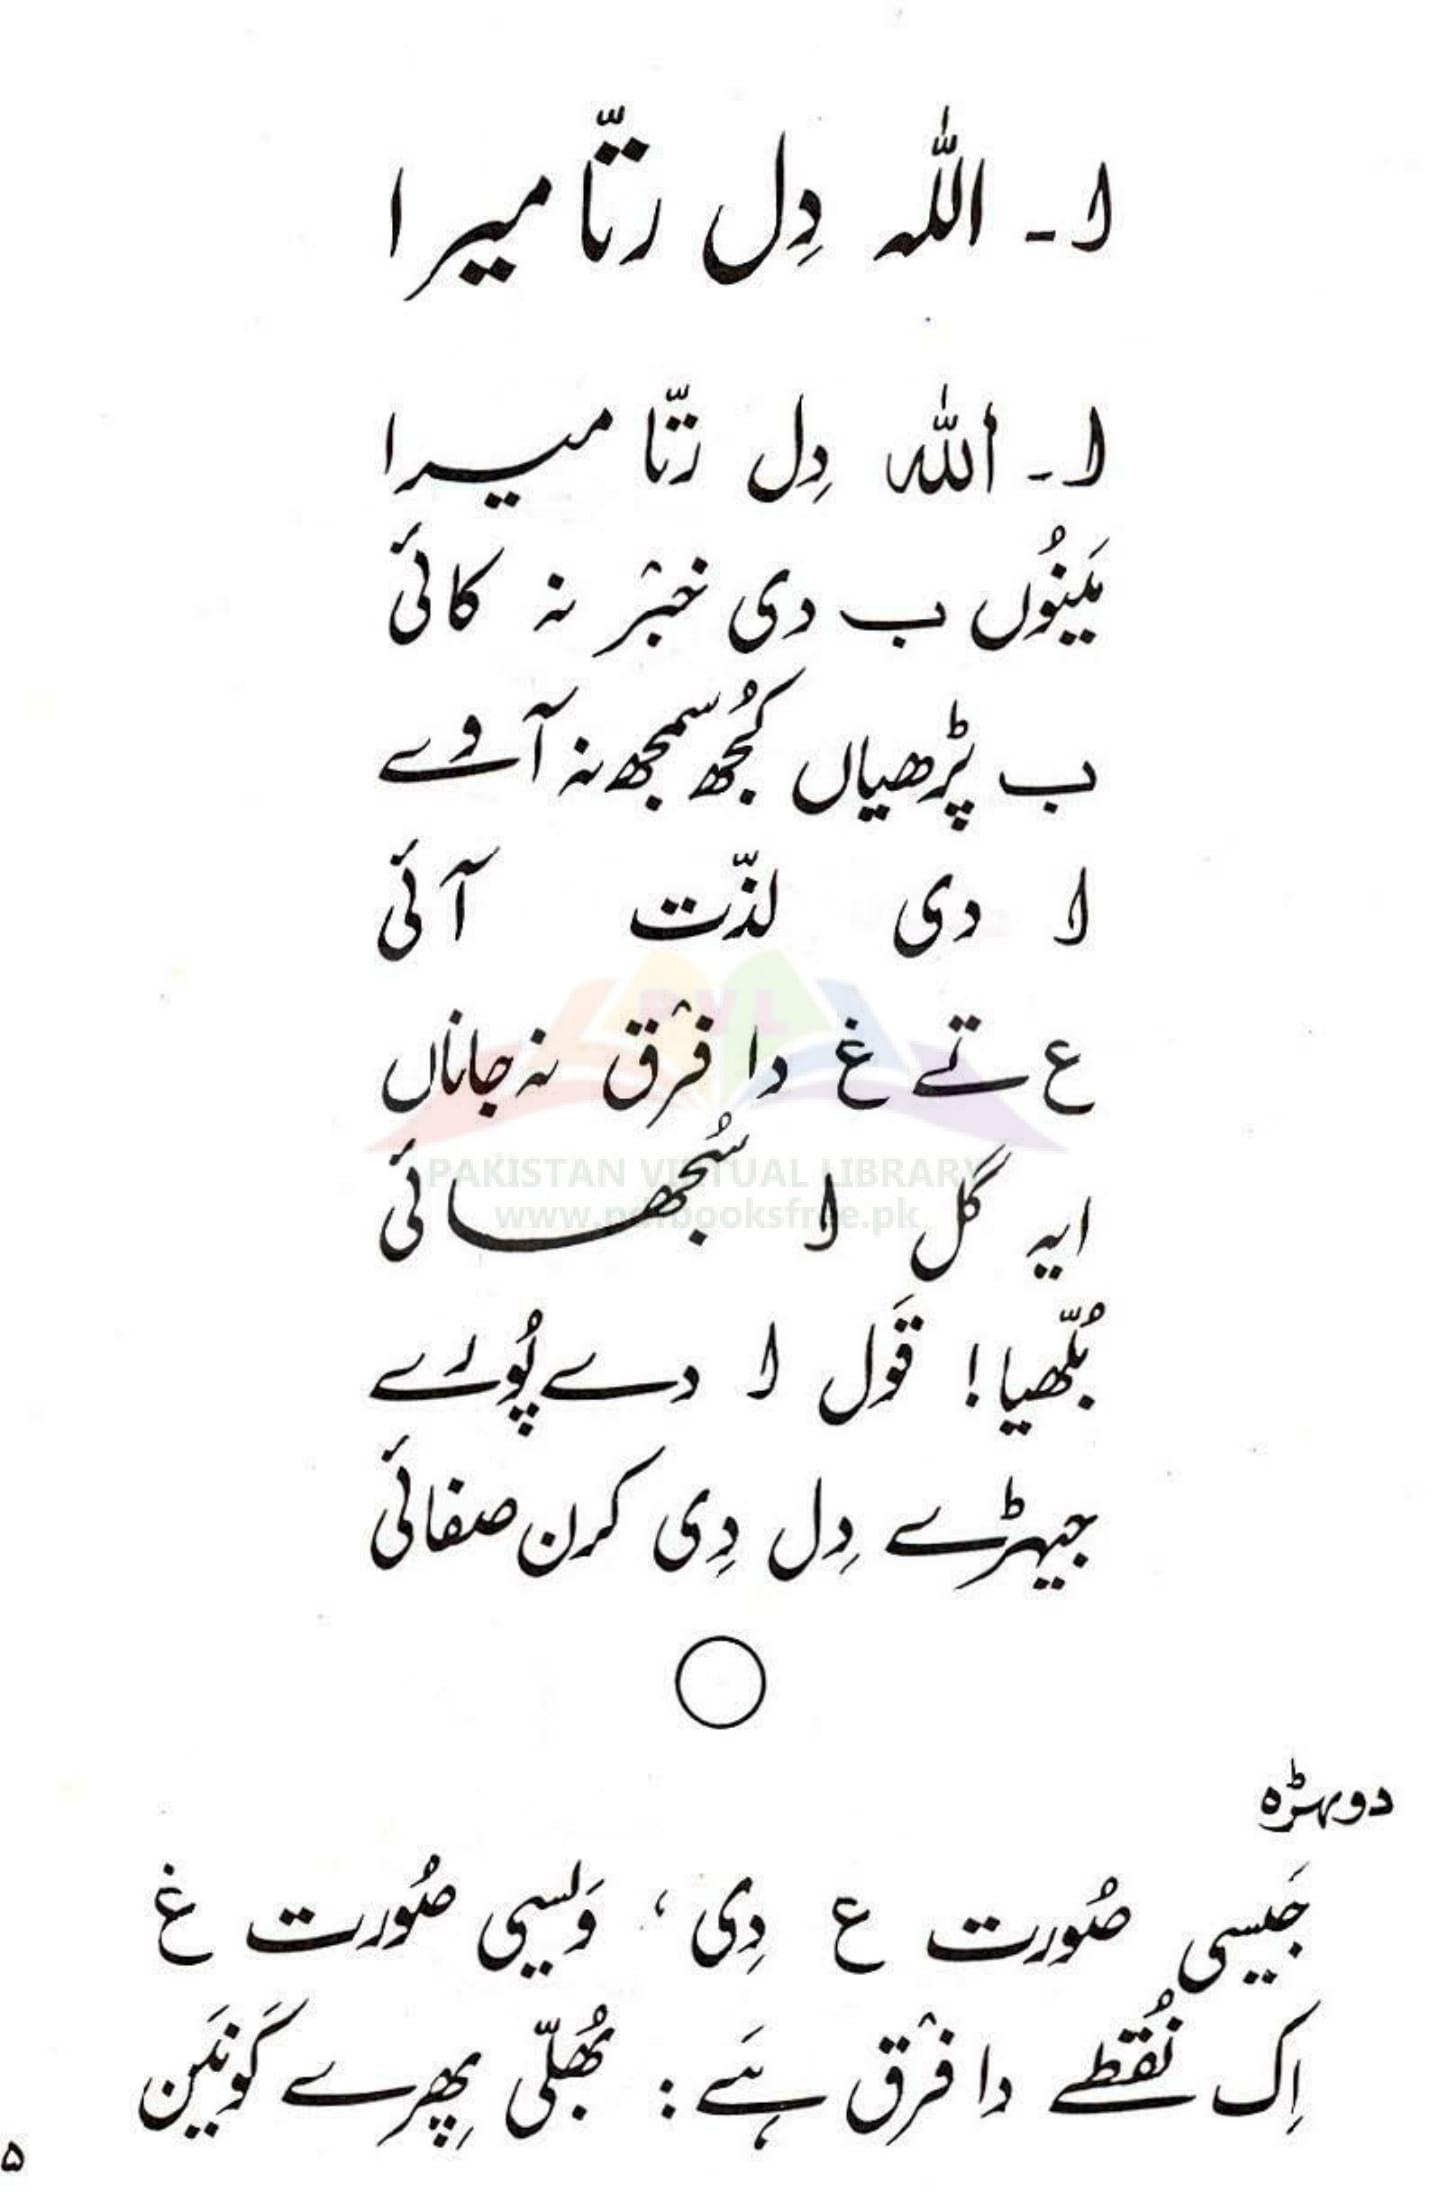 لا۔ اللہ دِل رتّا میرا
لا۔ اَللہ دِل رَتّا میرا
مَینُوں ب دی خبَر نہ کائی
ب پڑھیاں کُجھ سمجھ نہ آوے
لا دی لذّت آئی
ع تے غ دا فرٛق نہ جاناں
ایہ گَل لا سُجھائی
بُلّھیا! قَول لا دے پُورے
جیہڑے دِل دِی کرن صفائی
PVL
PAKISTAN VIRTUAL LIBRARY
www.pdfbooksfree.pk
دوہڑہ
جَیسی صُورت ع دِی، وَیسی صُورت غ
اِک نُقطے دا فرٛق ہَے: بُھلّی پِھرے کَونَین
۵